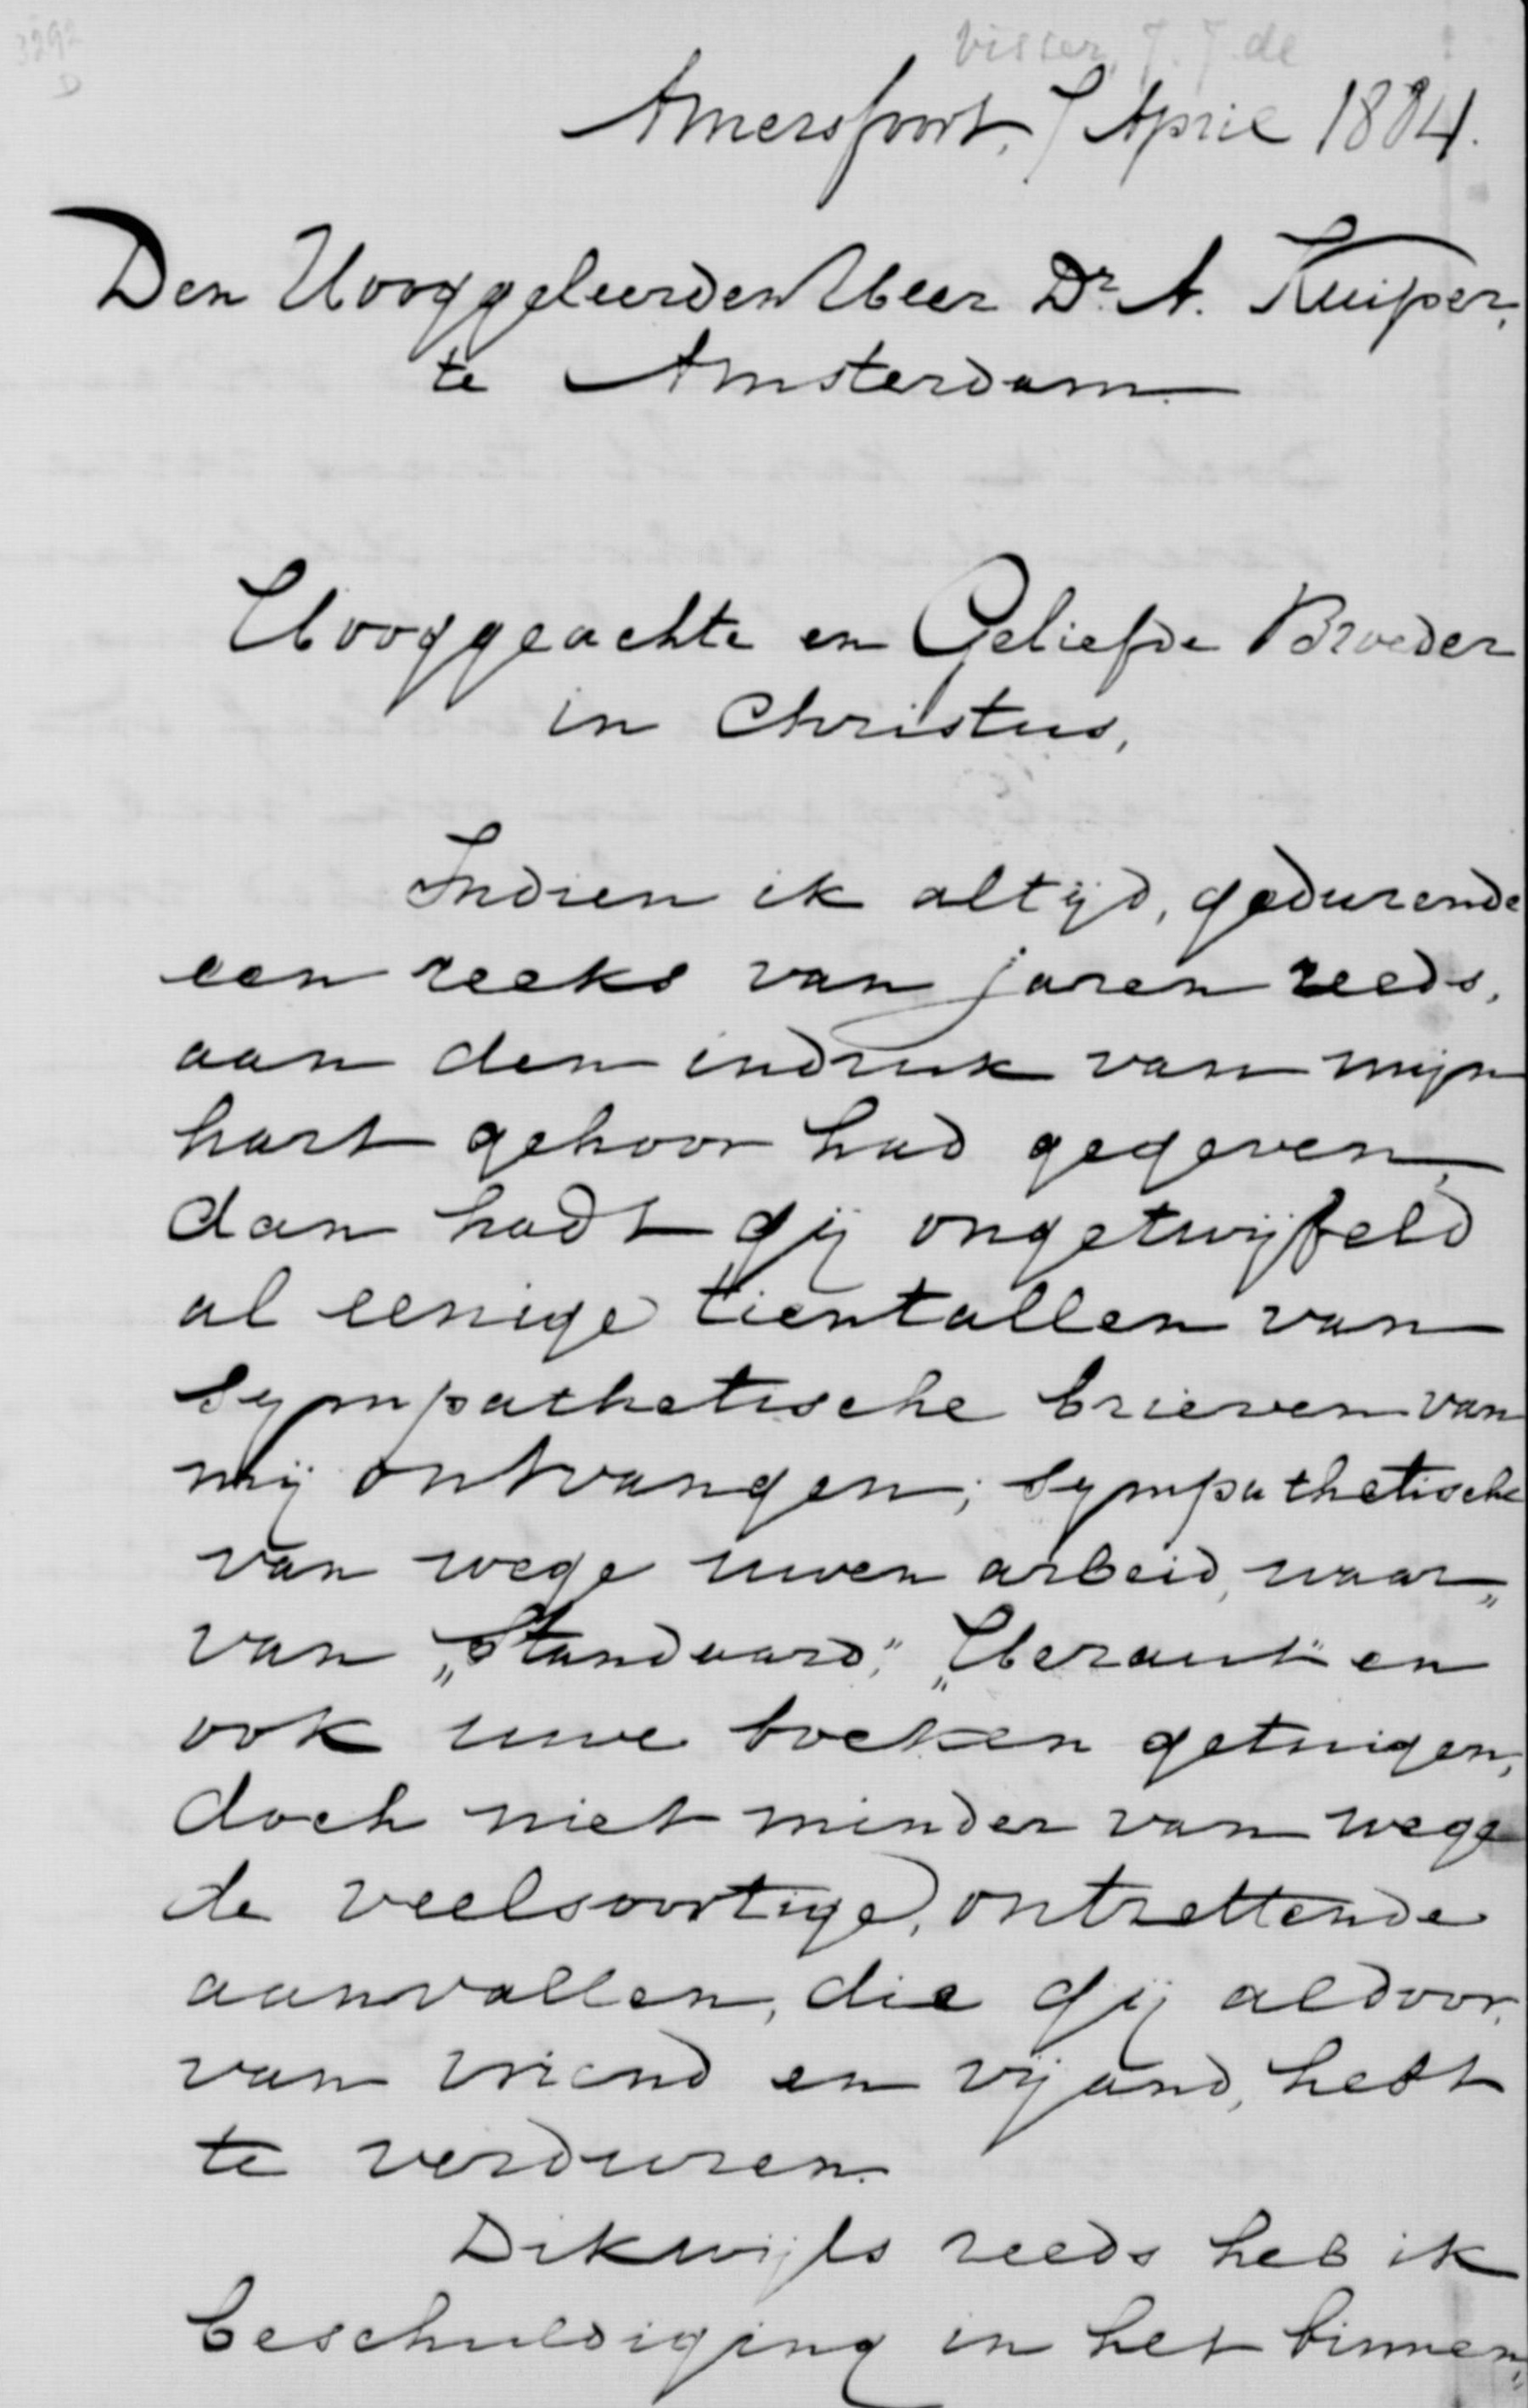 3292
D
Visser, J. J. de
Amersfoort, 7 April 1884.
Den Hooggeleerden Heer Dr. A. Kuiper,
te Amsterdam
Hooggeachte en Geliefde Broeder
in Christus,
Indien ik altijd, gedurende
een reeks van jaren reeds,
aan den indruk van mijn
hart gehoor had gegeven,
dan hadt gij ongetwijfeld
al eenige tientallen van
sympathetische brieven van
mij ontvangen; sympathetische
van wege uwen arbeid, waar„
van „Standaard," „Heraut" en
ook uwe boeken getuigen,
doch niet minder van wege
de veelsoortige, ontzettende
aanvallen, die gij aldoor,
van vriend en vijand, hebt
te verduren.
Dikwijls reeds heb ik
beschuldiging in het binnen„